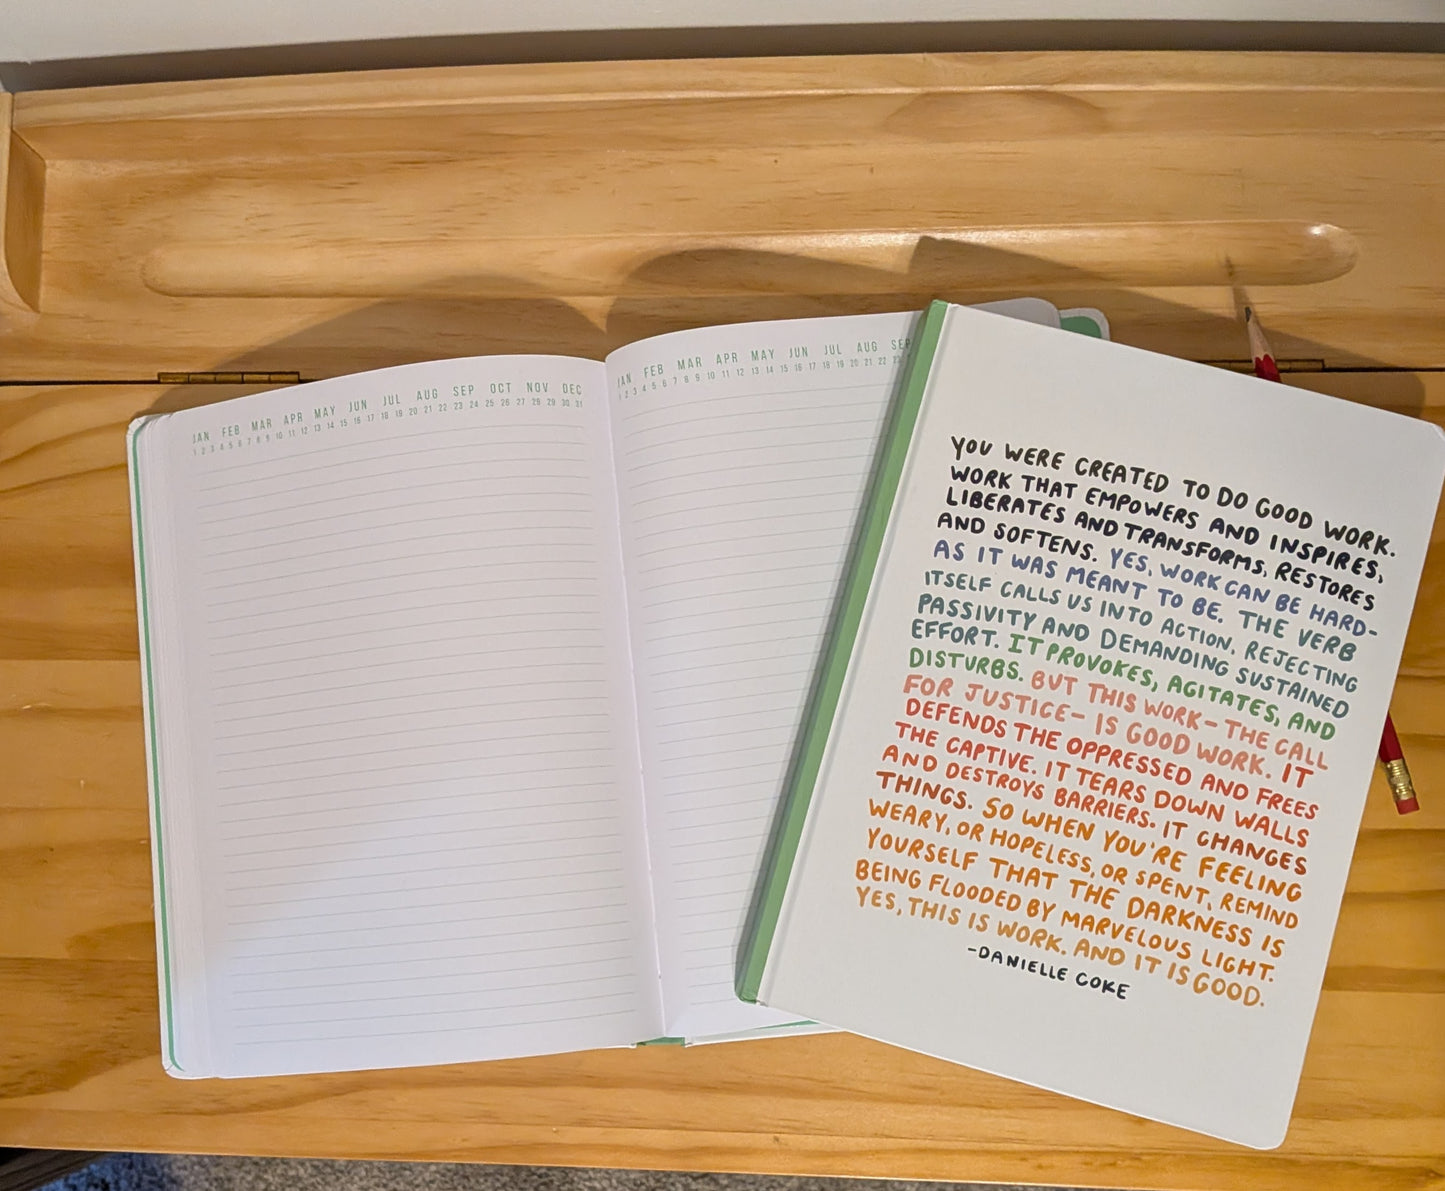 JAN FEB MAR APR MAY JUN JUL AUG SEP OCT NOV DEC
1 2 3 4 5 6 7 8 9 10 11 12 13 14 15 16 17 18 19 20 21 22 23 24 25 26 27 28 29 30 31
JAN FEB MAR APR MAY JUN JUL AUG SEP
1 2 3 4 5 6 7 8 9 10 11 12 13 14 15 16 17 18 19 20 21 22 23
YOU WERE CREATED TO DO GOOD WORK.
WORK THAT EMPOWERS AND INSPIRES,
LIBERATES AND TRANSFORMS, RESTORES
AND SOFTENS. YES, WORK CAN BE HARD-
AS IT WAS MEANT TO BE. THE VERB
ITSELF CALLS US INTO ACTION, REJECTING
PASSIVITY AND DEMANDING SUSTAINED
EFFORT. IT PROVOKES, AGITATES, AND
DISTURBS. BUT THIS WORK- THE CALL
FOR JUSTICE- IS GOOD WORK. IT
DEFENDS THE OPPRESSED AND FREES
THE CAPTIVE. IT TEARS DOWN WALLS
AND DESTROYS BARRIERS. IT CHANGES
THINGS. SO WHEN YOU'RE FEELING
WEARY, OR HOPELESS, OR SPENT, REMIND
YOURSELF THAT THE DARKNESS IS
BEING FLOODED BY MARVELOUS LIGHT.
YES, THIS IS WORK. AND IT IS GOOD.
-DANIELLE COKE